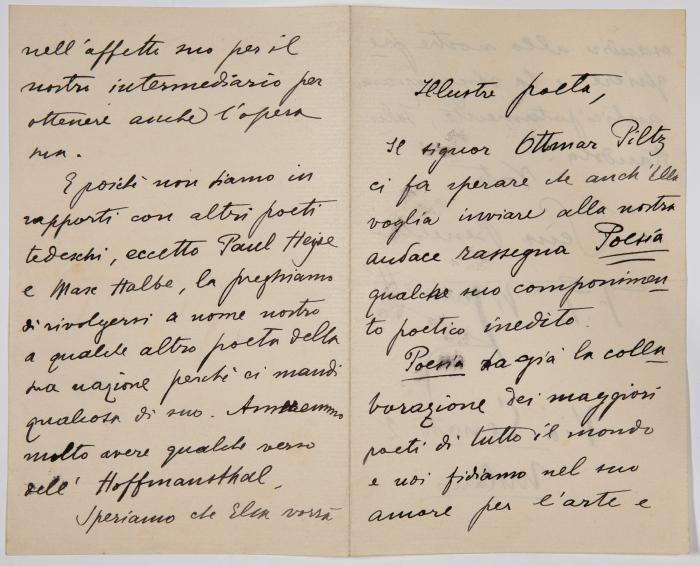 Illustre poeta,
Il signor Ottmar Piltz
ci fa sperare che anch'Ella
voglia inviare alla nostra
audace rassegna Poesia
qualche suo componimen-
to poetico inedito.
Poesia ha già la colla
borazione dei maggiori
poeti di tutto il mondo
e noi fidiamo nel suo
amore per l'arte e
nell'affetto suo per il
nostro intermediario per
ottenere anche l'opera
sua.
E poiché non siamo in
rapporti con altri poeti
tedeschi, eccetto Paul Heyse
e Max Halbe, la preghiamo
di rivolgersi a nome nostro
a qualche altro poeta della
sua nazione perché ci mandi
qualcosa di suo. Ameremmo
molto avere qualche verso
dell' Hoffmansthal.
Speriamo che Ella vorrà